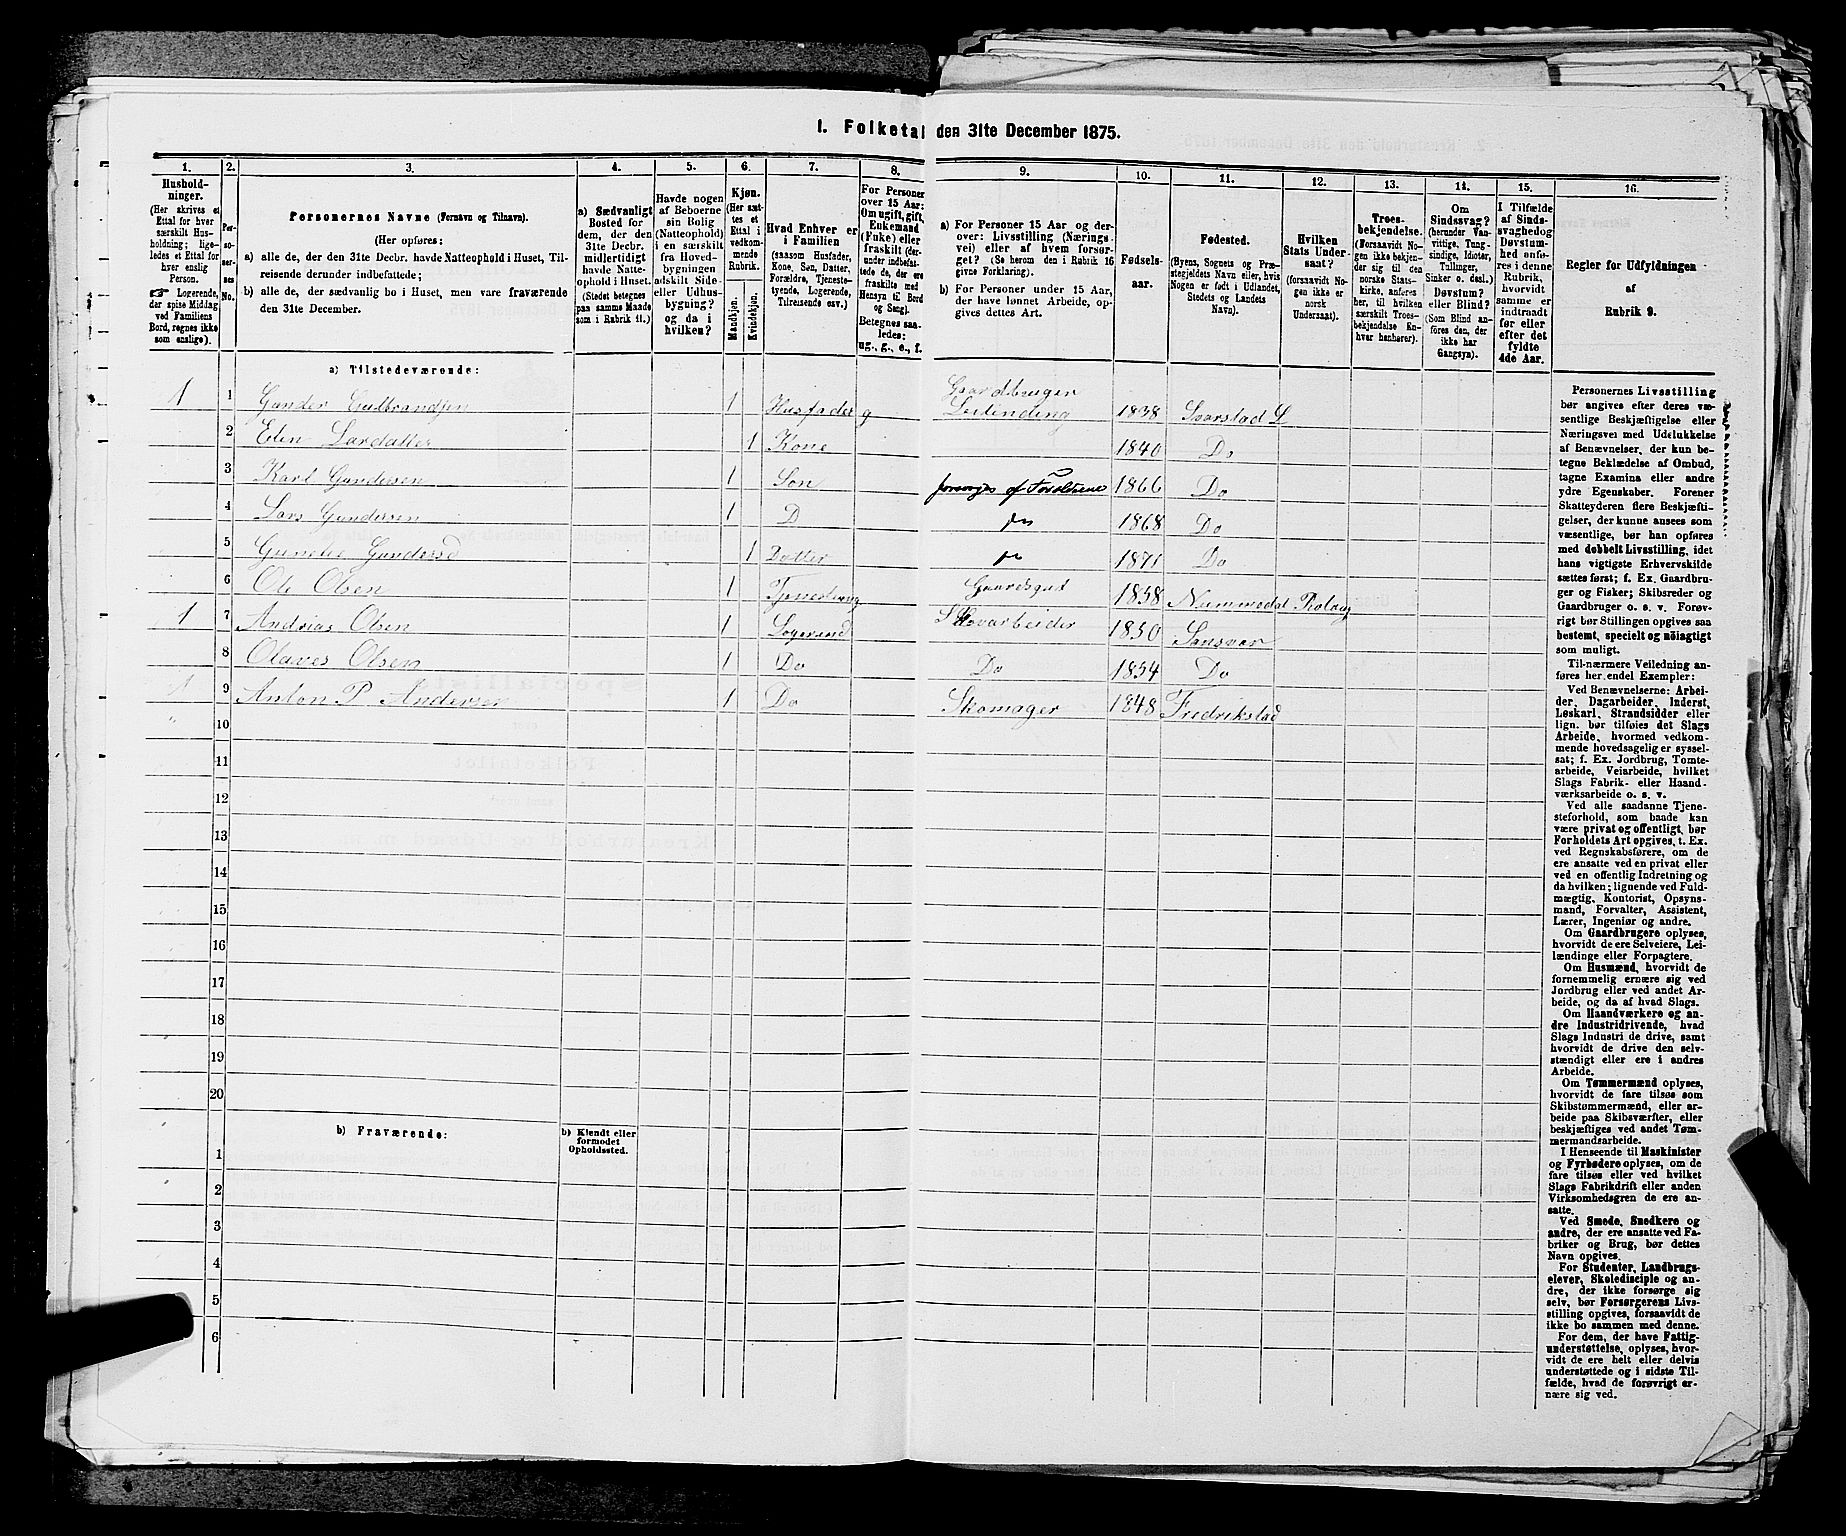 1. Folketal den 31te December 1875.
1. 2. 3. 4. 5. 6. 7. 8. 9. 10. 11. 12. 13. 14. 15. 16.
Hushold-
ninger.
(Her skrives et
Ettal for hver
særskilt Hus-
holdning; lige-
ledes et Ettal for
hver enslig
Person.
☞ Logerende,
der spise Middag
ved Familiens
Bord, regnes ikke
som enslige).
Per-
so-
ner-
nes
No.
Personernes Navne (Fornavn og Tilnavn).
(Her opføres:
a) alle de, der den 31te Decbr. havde Natteophold i Huset, Til-
reisende derunder indbefattede;
b) alle de, der sædvanlig bo i Huset, men vare fraværende
den 31te December.
a) Sædvanligt
Bosted for
dem, der den
31te Decbr.
midlertidigt
havde Natte-
ophold i Huset.
(Stedet betegnes
paa samme Maade
som i Rubrik 11.)
Havde nogen
af Beboerne
sin Bolig
(Natteophold)
i en særskilt
fra Hoved-
bygningen
adskilt Side-
eller Udhus-
bygning?
og da i
hvilken?
Kjøn.
(Her sæt-
tes et
Ettal i
vedkom-
mende
Rubrik.
Mandkjøn.
Kvindekjøn.
Hvad Enhver er
i Familien
(saasom Husfader,
Kone, Søn, Datter,
Forældre, Tjeneste-
tyende, Logerende,
Tilreisende osv.)
For Personer
over 15 Aar:
Om ugift, gift,
Enkemand
(Fuke) eller
fraskilt (der-
under indbefat-
tede de, der ere
fraskilte med
Hensyn til Bord
og Sæng).
Betegnes saa-
ledes:
ug., g., e., f.
a) For Personer 15 Aar og der-
over: Livsstilling (Nærings-
vei) eller af hvem forsør-
get? (Se herom den i Rubrik 16
givne Forklaring).
b) For Personer under 15 Aar,
der have lønnet Arbeide, op-
gives dettes Art.
Fødsels-
aar.
Fødested.
(Byens, Sognets og Præ-
stegjeldets Navn eller, hvis
Nogen er født i Udlandet,
Stedets og Landets
Navn).
Hvilken
Stats Under-
saat?
(forsaavidt No-
gen ikke er
norsk
Undersaat).
Troes-
bekjendelse.
(Forsaavidt No-
gen ikke bekjen-
der sig til den
norske Stats-
kirke, anføres
her, til hvilken
særskilt Troes-
bekjendelse En-
hver henhører).
Om
Sindssvag?
(herunder Van-
vittige, Tung-
sindige, Idioter,
Tullinger,
Sinker o. desl.)
Døvstum?
eller Blind?
(Som Blind an-
føres den, der
ikke har
Gangsyn).
I Tilfælde
af Sinds-
svaghed og
Døvstum-
hed anfø-
res i denne
Rubrik,
hvorvidt
samme er
indtraadt
før eller
efter det
fyldte
4de Aar.
Regler for Udfyldningen
af
Rubrik 9.
a) Tilstedeværende:
1 1 Gunder Gulbrandsen 1 Husfader g Gaardbruger Leilending 1838 Svarstad L
2 Elen Larsdatter 1 Kone 1840 Do
3 Karl Gundersen 1 Søn forsørges af Forældrene 1866 Do
4 Lars Gundersen 1 D 1868 Do
5 Gunelie Gundersd 1 Datter 1871 Do
6 Ole Olsen 1 Gaardsgut 1858 Nummedal Rolaug
1 7 Andrias Olsen 1 Logerend Skovarbeider 1850 Sansver
8 Olaves Olsen 1 Do Do 1854 Do
1 9 Anton P. Andersen 1 Do Skomager 1848 Fredrikstad
10
11
12
13
14
15
16
17
18
19
20
b) Fraværende:
b) Kjendt eller
formodet
Opholdssted.
1
2
3
4
5
6
Personernes Livsstilling
bør angives efter deres væ-
sentlige Beskjæftigelse eller
Næringsvei med Udelukkelse
af Benævnelser, der kun be-
tegne Beklædelse af Ombud,
tagne Examina eller andre
ydre Egenskaber. Forener
Skatteyderen flere Beskjæfti-
gelser, der kunne ansees som
væsentlige, bør han opføres
med dobbelt Livsstilling, idet
hans vigtigste Erhvervskilde
sættes først; f. Ex. Gaardbru-
ger og Fisker; Skibsreder og
Gaardbruger o. s. v. Forøv-
rigt bør Stillingen opgives saa
bestemt, specielt og nöiagtigt
som muligt.
Til nærmere Veiledning an-
føres her endel Exempler:
Ved Benævnelserne: Arbei-
der, Dagarbeider, Inderst,
Løskarl, Strandsidder eller
lign. bør tilføies det Slags
Arbeide, hvormed vedkom-
mende hovedsagelig er syssel-
sat; f. Ex. Jordbrug, Tomte-
arbeide, Veiarbeide, hvilket
Slags Fabrik- eller Haand-
værksarbeide o. s. v.
Ved alle saadanne Tjene-
steforhold, som baade kan
være privat og offentligt, bør
Forholdets Art opgives, t. Ex.
ved Regnskabsførere, om de
ere ansatte ved en privat eller
ved en offentlig Indretning og
da hvilken; lignende ved Fuld-
mægtig, Kontorist, Opsyns-
mand, Forvalter, Assistent,
Lærer, Ingeniør og andre.
Om Gaardbrugere oplyses,
hvorvidt de ere Selveiere, Lei-
lændinge eller Forpagtere.
Om Husmænd, hvorvidt de
fornemmelig ernære sig ved
Jordbrug eller ved andet Ar-
beide, og da af hvad Slags.
Om Haandværkere og an-
dre Industridrivende, hvad
Slags Industri de drive, samt
hvorvidt de drive den selv-
stændigt eller ere i andres
Arbeide.
Om Tømmermænd oplyses,
hvorvidt de fare tilsøs som
Skibstømmermænd, eller ar-
beide paa Skibsværfter, eller
beskjæftiges ved andet Tøm-
mermandsarbeide.
I Henseende til Maskinister
og Fyrbødere oplyses, om de
fare tilsøs eller ved hvilket
Slags Fabrikdrift eller anden
Virksomhedsgren de ere an-
satte.
Ved Smede, Snedkere og
andre, der ere ansatte ved Fa-
briker og Brug, bør dettes
Navn opgives.
For Studenter, Landbrugs-
elever, Skoledisciple og an-
dre, der ikke forsørge sig
selv, bør Forsørgerens Livs-
stilling opgives, forsaavidt de
ikke bo sammen med denne.
For dem, der have Fattig-
understøttelse, oplyses, hvor-
vidt de ere helt eller delvis
understøttede og i sidste Til-
fælde, hvad de forøvrigt er-
nære sig ved.